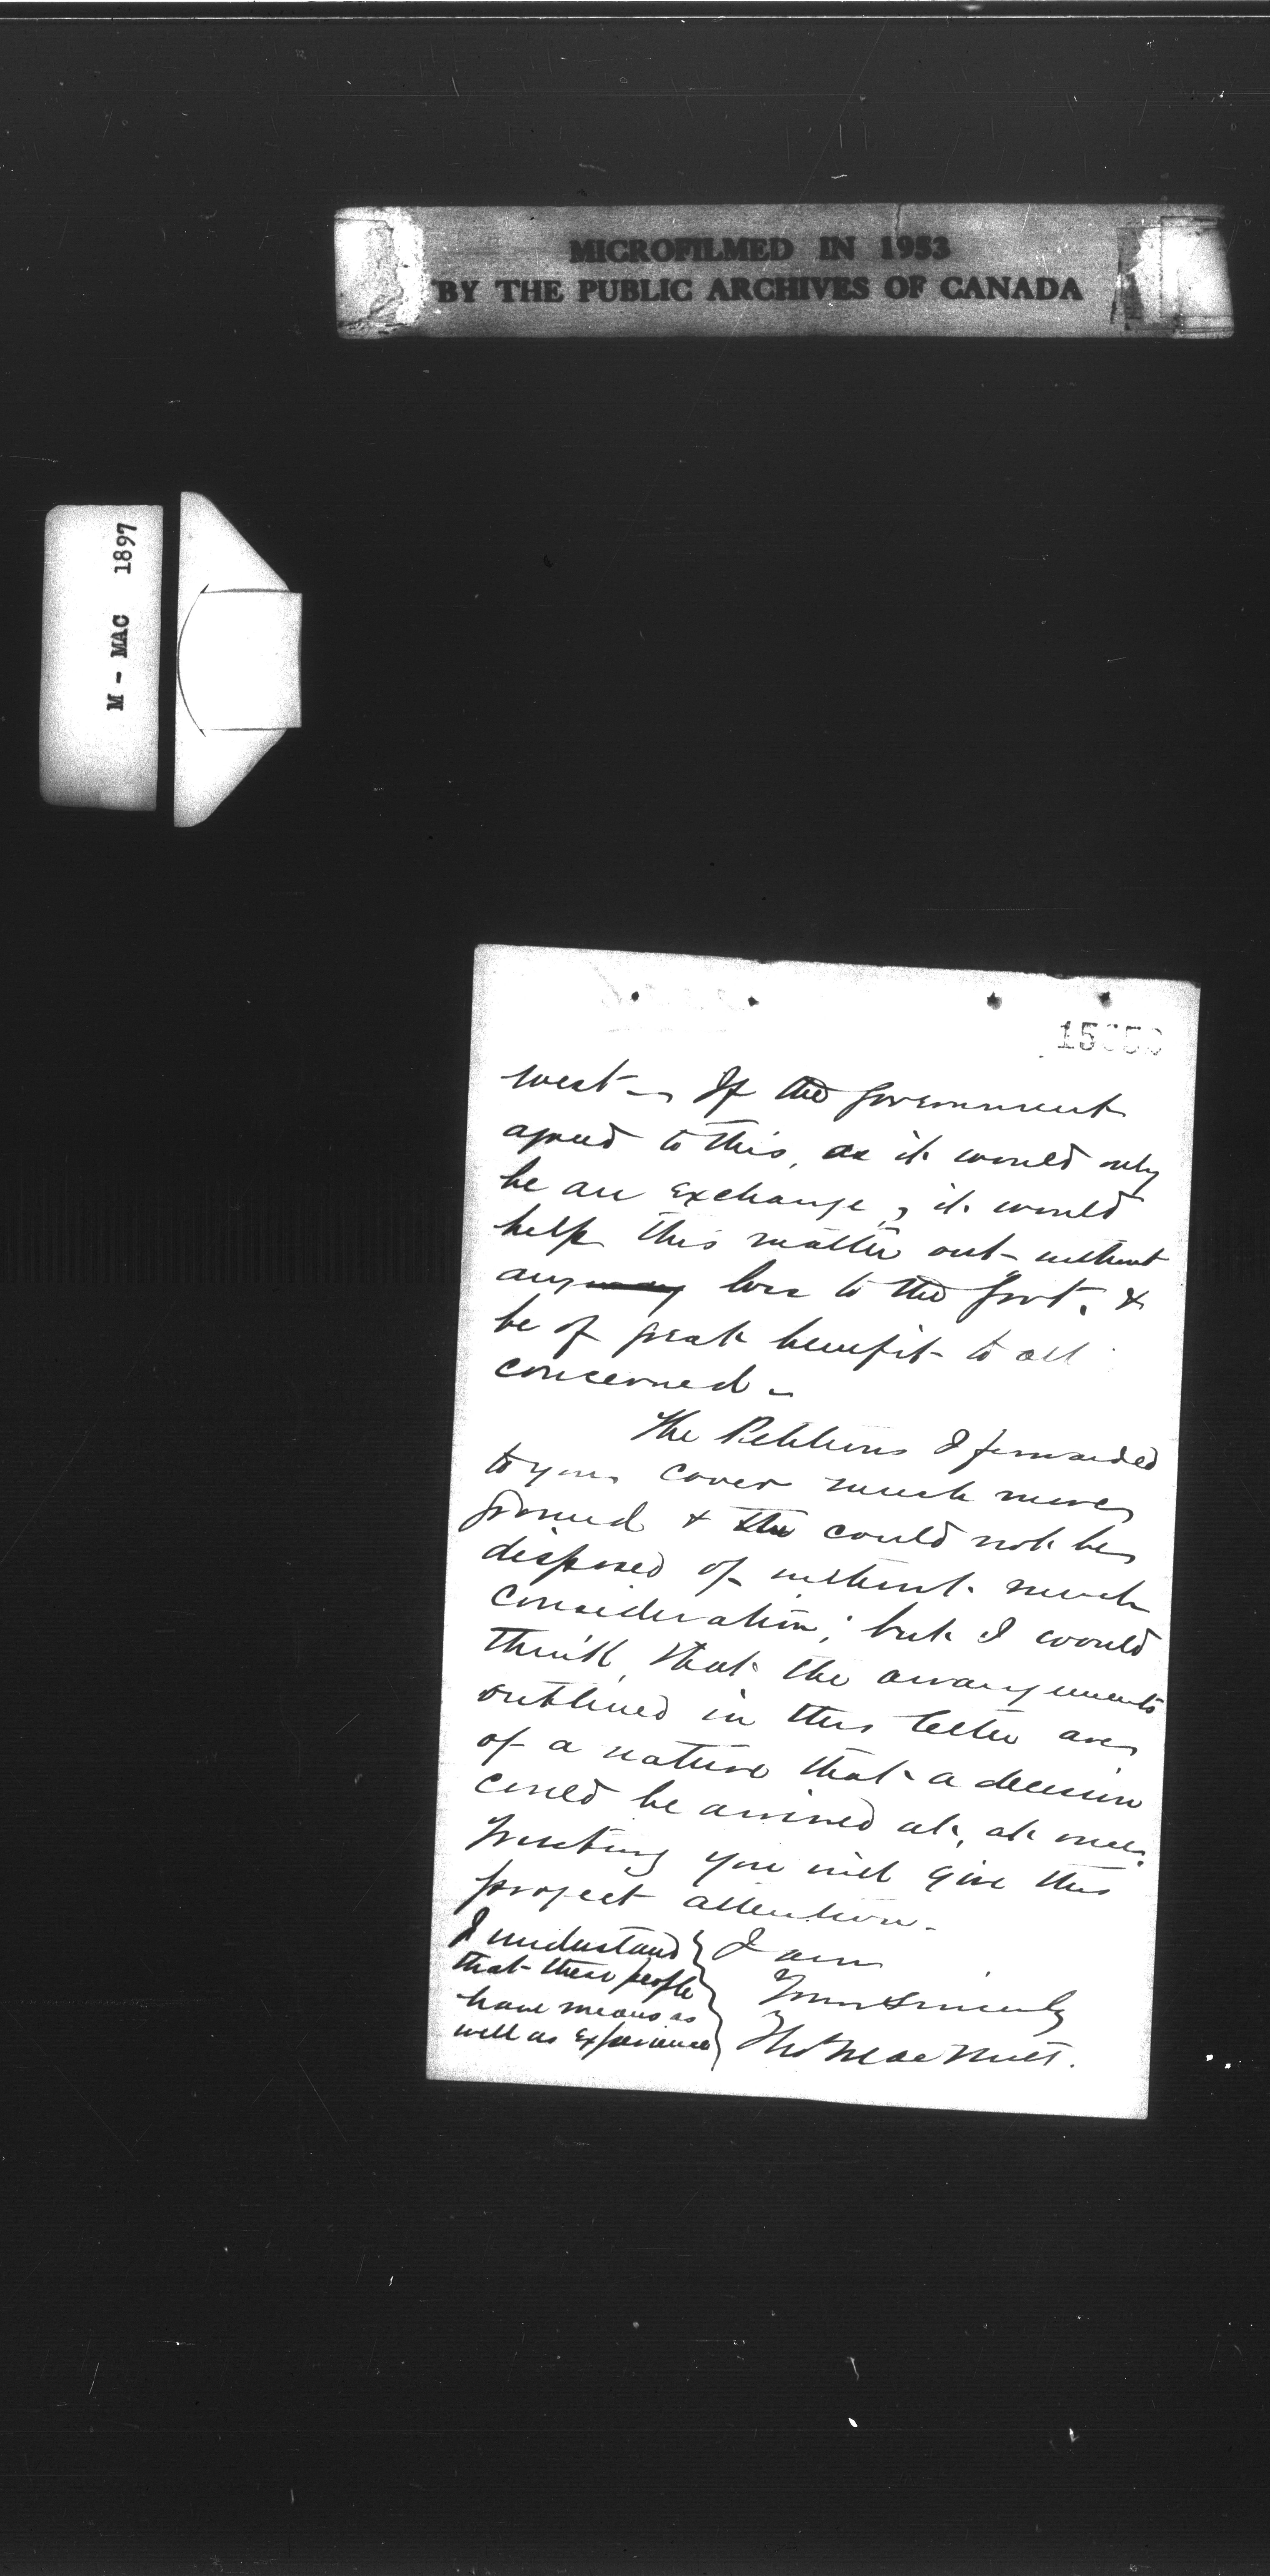 MICROFILMED IN 1953
BY THE PUBLIC ARCHIVES OF CANADA
M - MAC 1897
west - If the Government
agreed to this, as it would only
be an exchange, it would
help this matter out - without
any loss to the Govt. &
be of great benefit to all
concerned -
The Petitions I forwarded
to you cover much more
ground & could not be
disposed of without much
consideration; but I would
think, that the arrangements
outlined in this letter are
of a nature that a decision
could be arrived at, at once.
Trusting you will give this
project attention -
I am
Yours Sincerely
Thos MacNutt.
I understand
that these people
have means as
well as experience